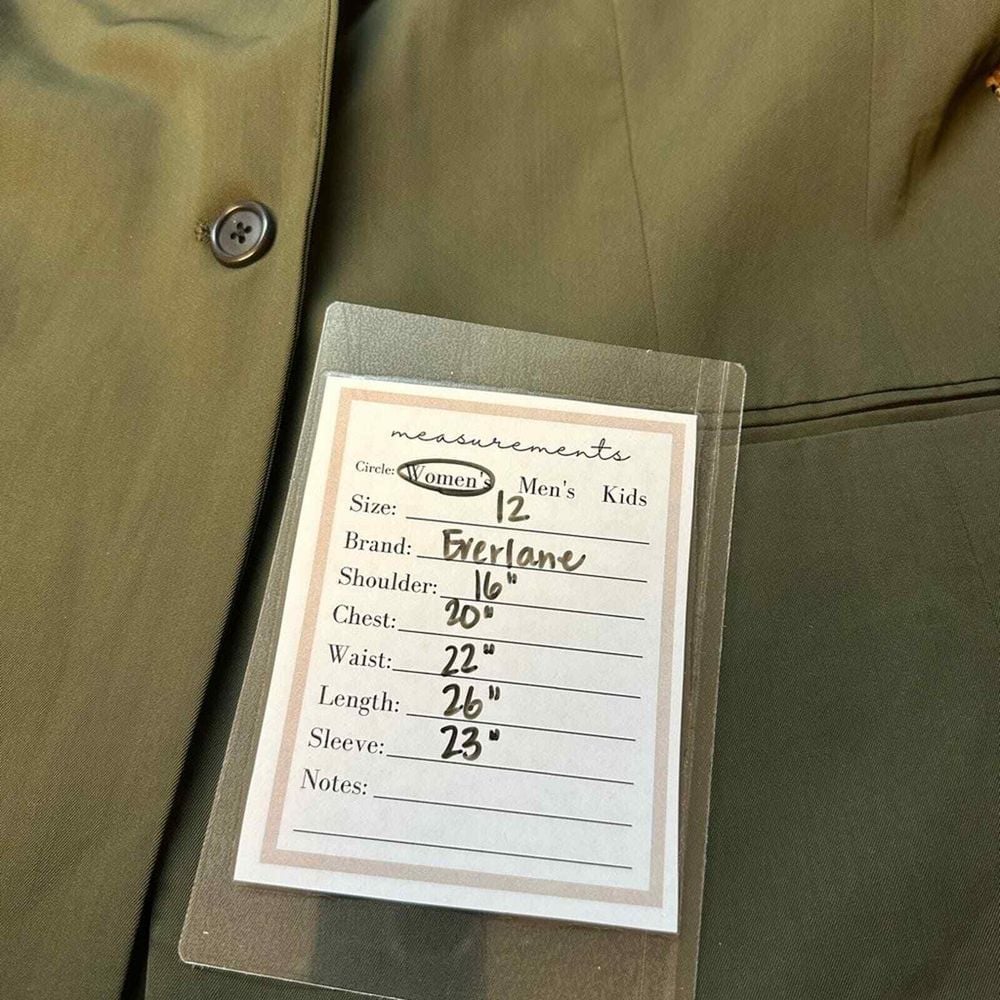 measurements
Circle: Women's Men's Kids
Size: 12
Brand: Everlane
Shoulder: 16"
Chest: 20"
Waist: 22"
Length: 26"
Sleeve: 23"
Notes: